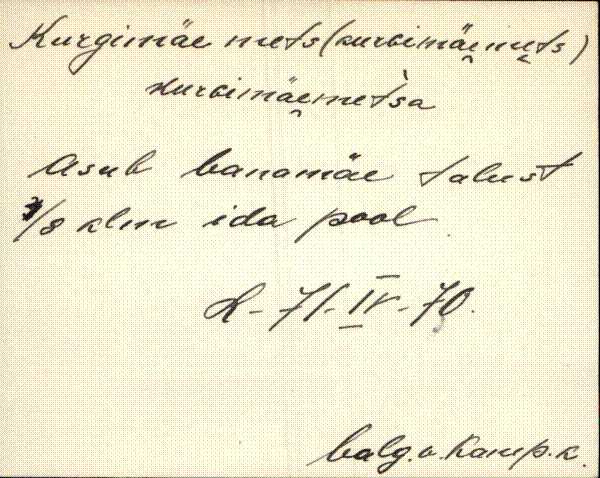 Kurgimäe mets (kurɢimäe̯me̯ts)
kurɢimäe̯met̀sa
Asub Vanamäe talust
/8 klm ida pool.
H-71-IV-70.
Valg.v. Kamp.k.